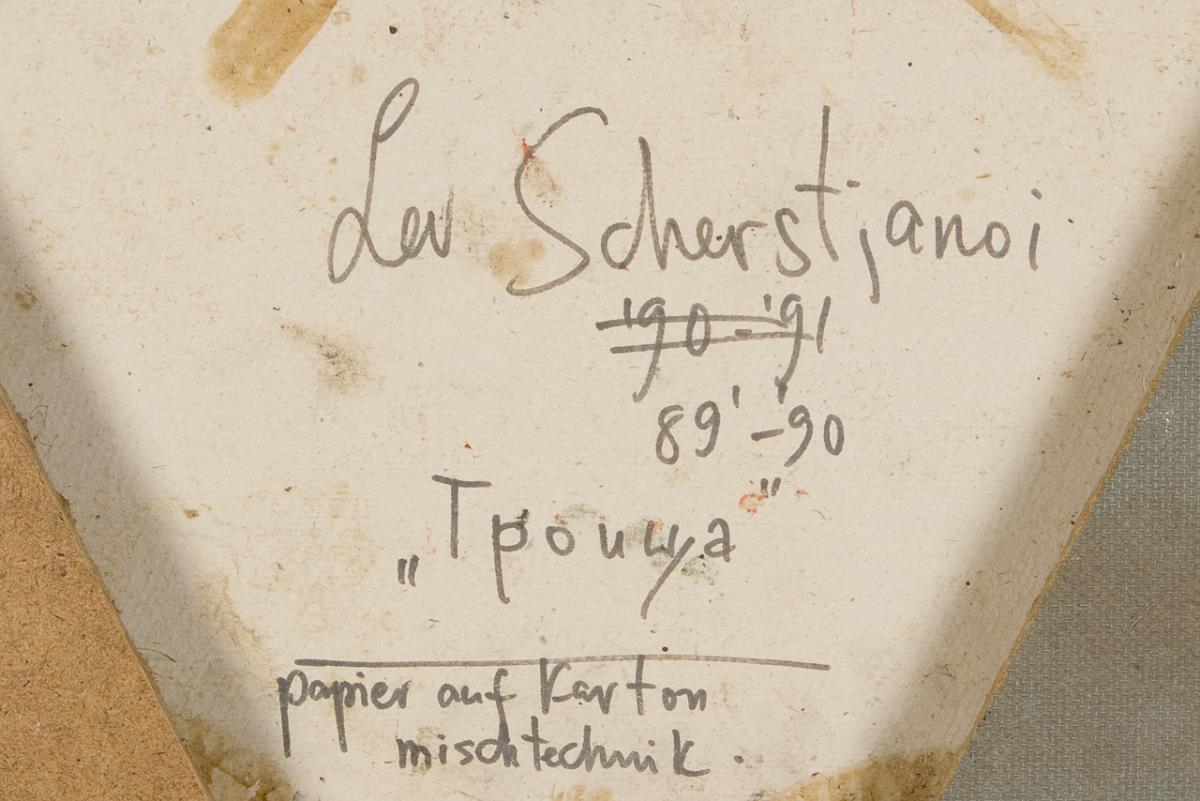 Lev Scherstjanoi
'90-'91
89'-'90
„Троица"
papier auf Karton
mischtechnik.